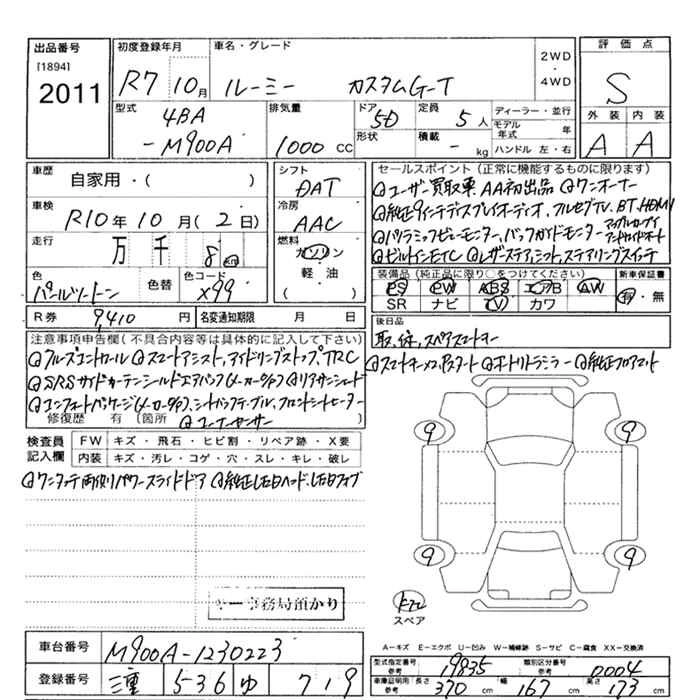 出品番号
[1894]
2011
初度登録年月
R7 10月
車名・グレード
ルーミー カスタムG-T
2WD
・
4WD
評価点
S
外装 内装
A A
型式
4BA
-M900A
排気量
1000 CC
ドア
5D
形状
定員
5人
積載
- kg
ディーラー・並行
モデル年式 年
ハンドル 左・右
車歴
自家用・( )
車検
R10年10月(2日)
走行
万 千 8 km
色
パールツートン
色替
色コード
X99
シフト
DAT
冷房
AAC
燃料
ガソリン
・
軽油
R券 9,410 円
名変通知期限 月 日
セールスポイント(正常に機能するものに限ります)
◎ユーザー買取車 AA初出品 ◎ワンオーナー
◎純正9インチディスプレイオーディオ、フルセグTV、BT、HDMI
アップルカープレイ
アンドロイドオート
◎パノラミックビューモニター、バックガイドモニター
◎ビルトインETC ◎レザーステア、シフト、ステアリングスイッチ
装備品(純正品に限り○をつけてください)
PS PW ABS エアB AW
SR ナビ TV カワ
新車保証書
有・無
後日品
取、保、スペアスマートキー
注意事項申告欄(不具合内容等は具体的に記入して下さい)
◎クルーズコントロール ◎スマートアシスト、アイドリングストップ、TRC
◎SRSサイドカーテンシールドエアバック(メーカーOP) ◎リアサンシェード
◎コンフォートパッケージ(メーカーOP)、シートバックテーブル、フロントシートヒーター
修復歴 有 〔箇所 )
◎コーナーセンサー
◎スマートキー×2、Pスタート ◎オートリトラミラー ◎純正フロアマット
検査員記入欄
FW キズ・飛石・ヒビ割・リペア跡・X要
内装 キズ・汚レ・コゲ・穴・スレ・キレ・破レ
◎ワンタッチ両側パワースライドドア ◎純正LEDヘッド、LEDフォグ
9 9
9 9
スペア
キー事務局預かり
車台番号 M900A-1230223
登録番号 三重 536 ゆ 719
A-キズ E-エクボ U-凹み W-補修跡 S-サビ C-腐食 XX-交換済
型式指定番号 参考 19835
類別区分番号 参考 0004
車庫証明用 参考 長さ 370 cm 幅 167 cm 高さ 173 cm